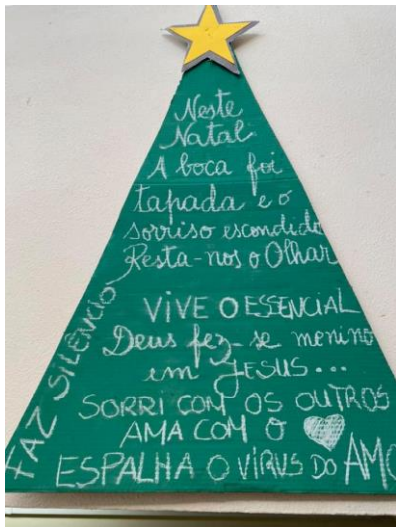 Neste
Natal
A boca foi
tapada e o
sorriso escondido
Resta-nos o Olhar
VIVE O ESSENCIAL
Deus fez-se menino
em JESUS...
SORRI COM OS OUTROS
AMA COM O
ESPALHA O VÍRUS DO AMO
FAZ SILÊNCIO